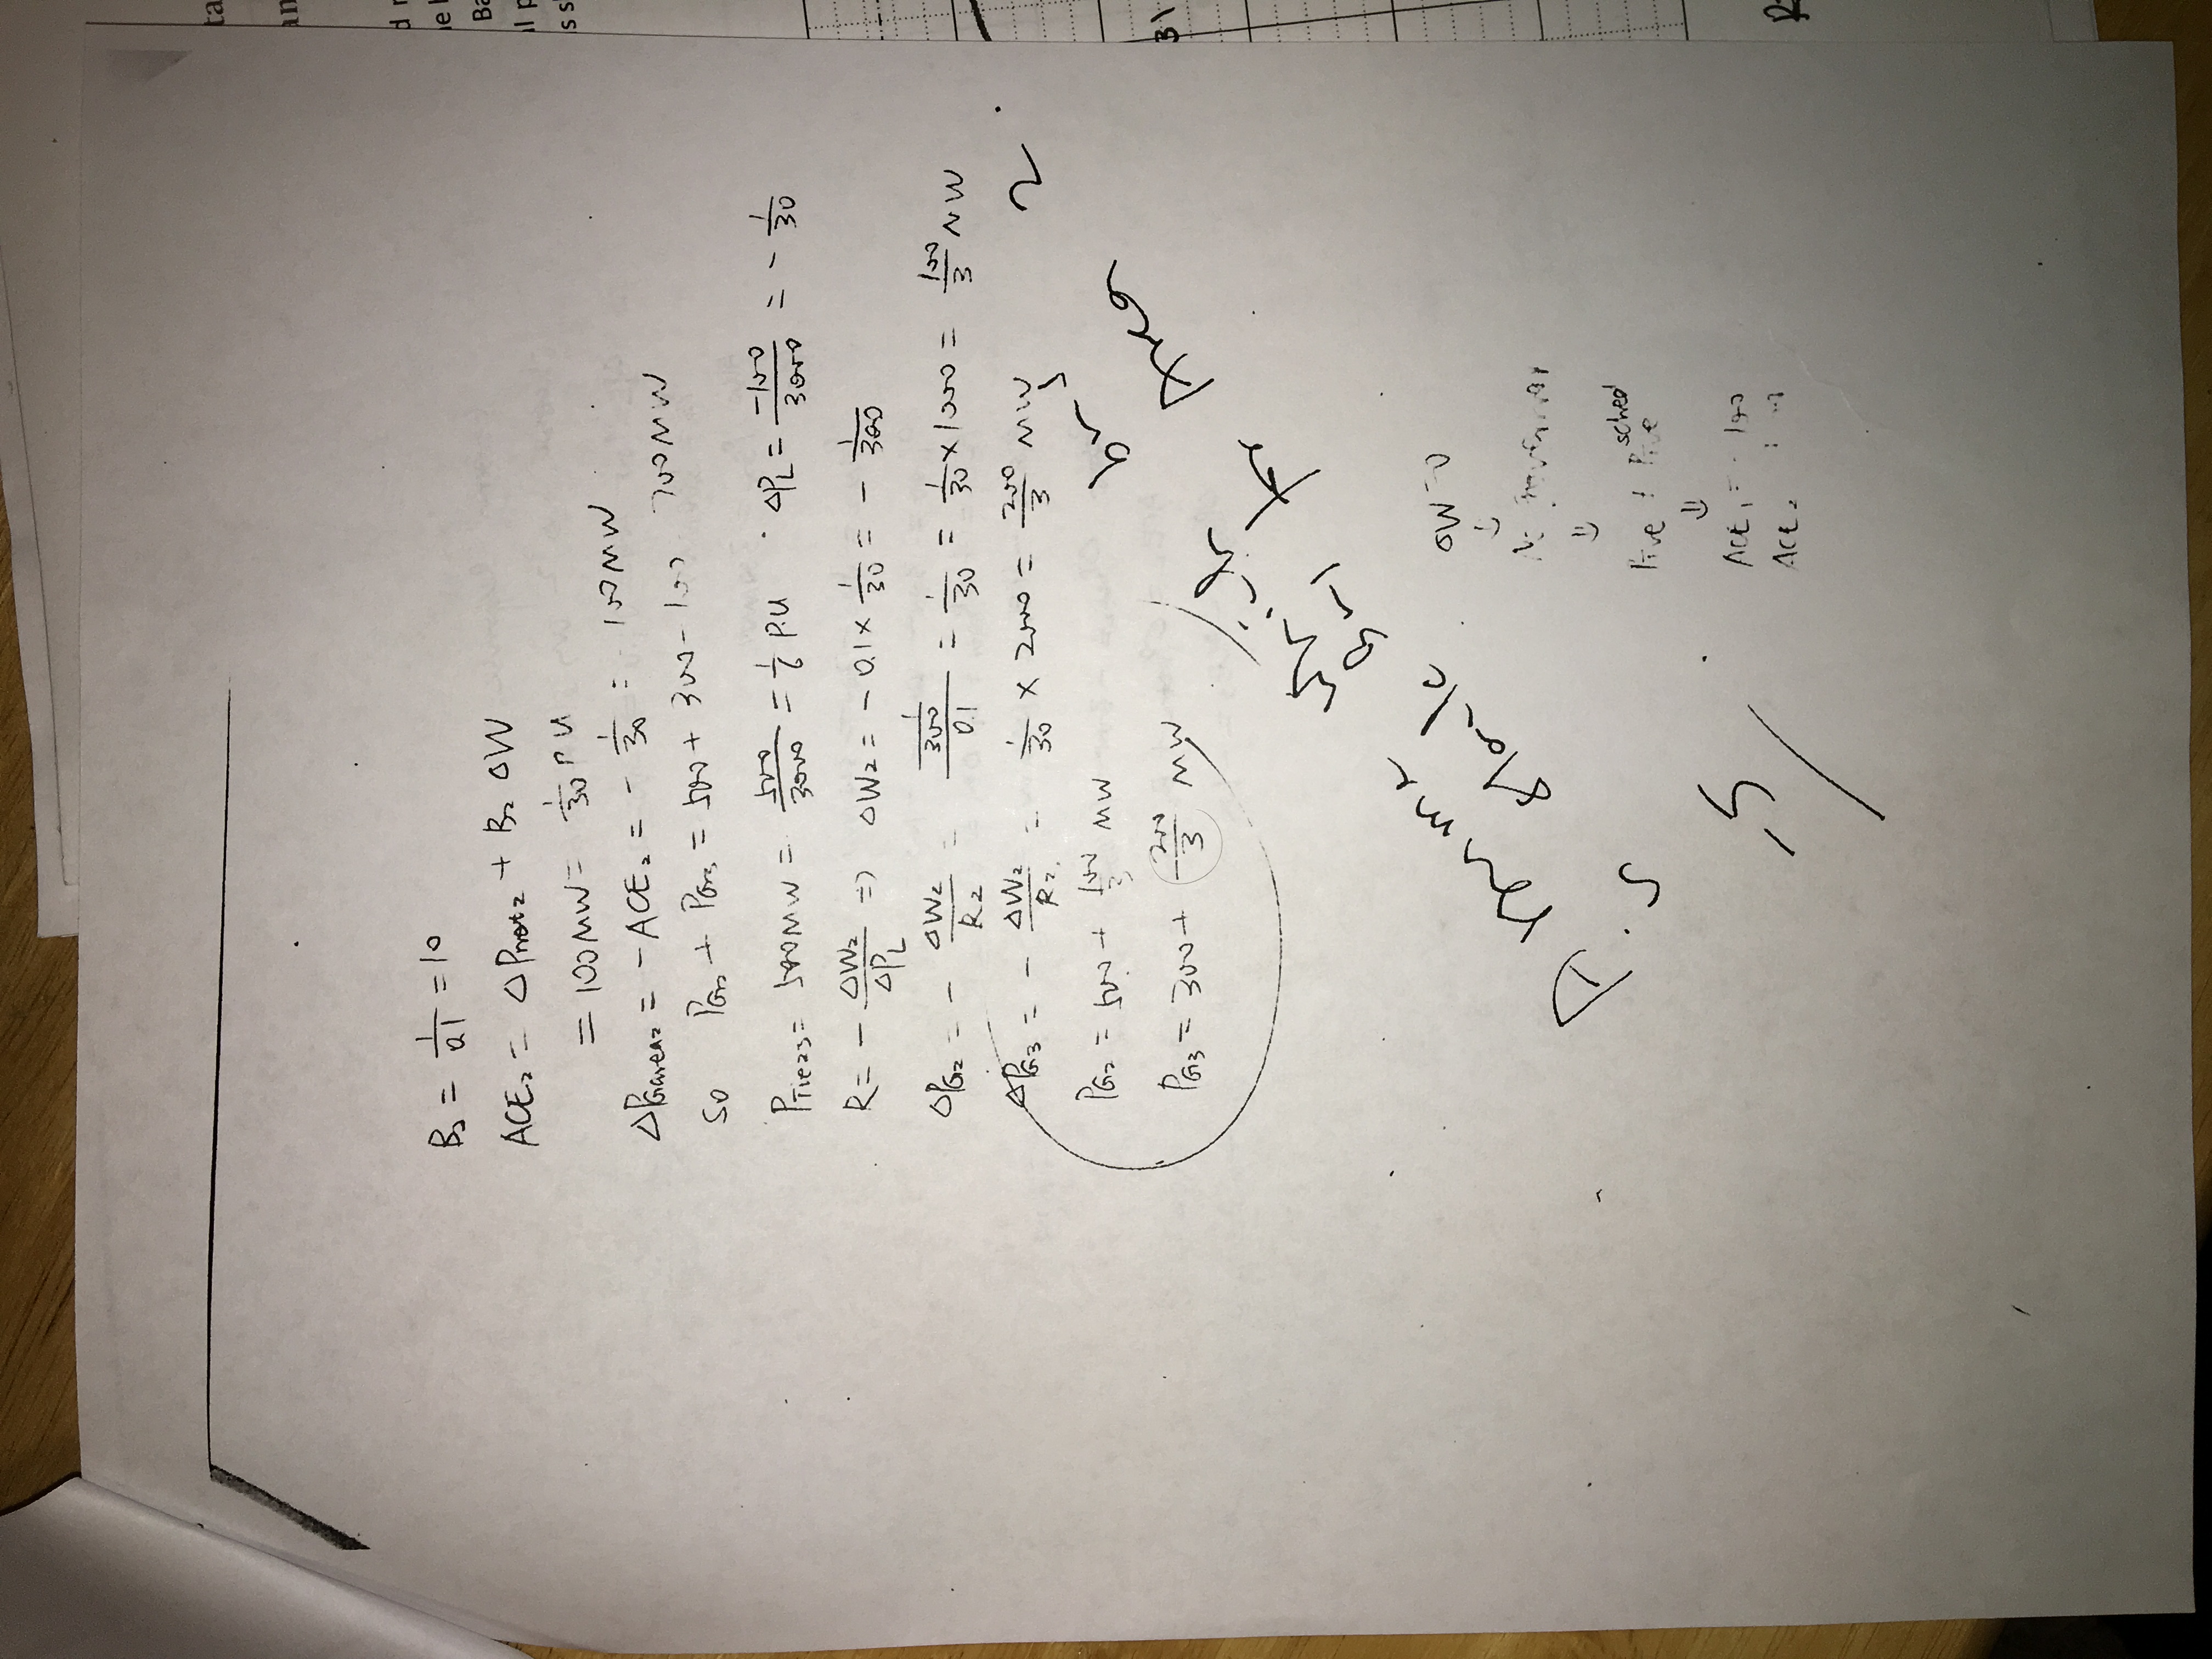 B₂ = 1/0.1 = 10
ACE₂ = ΔPnet₂ + B₂ ΔW
= 100MW = 1/30 P.U
ΔPGarea₂ = -ACE₂ = - 1/30 = - 100MW
so PG₂ + PG₃ = 500 + 300 - 100 700MW
PTie23 = 500MW = 500/3000 = 1/6 P.U ΔPL = -100/3000 = - 1/30
R = - ΔW₂/ΔPL => ΔW₂ = -0.1 × 1/30 = - 1/300
ΔPG₂ = - ΔW₂/R₂ = 1/300/0.1 = 1/30 = 1/30 × 1000 = 100/3 MW
ΔPG₃ = - ΔW₂/R₂ = 1/30 × 2000 = 200/3 MW
PG₂ = 500 + 100/3 MW
PG₃ = 300 + 200/3 MW
Assume which bus
is slack Bus for Area 2
-5
ΔW=0
↓
⇓
sched
⇓
ACE₁ = -100
ACE₂
ta
an
d
Ba
31
R